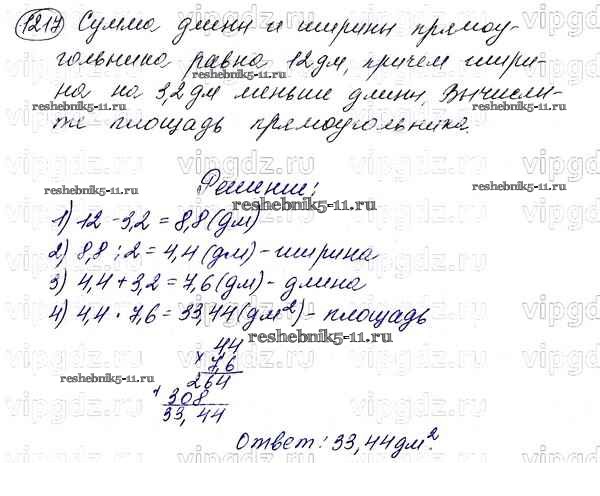 1217 Сумма длины и ширины прямоу-
гольника равна 12 дм, причем шири-
на на 3,2 дм меньше длины. Вычисли-
те площадь прямоугольника.
Решение:
1) 12 - 3,2 = 8,8 (дм)
2) 8,8 : 2 = 4,4 (дм) - ширина
3) 4,4 + 3,2 = 7,6 (дм) - длина
4) 4,4 · 7,6 = 33,44 (дм²) - площадь
44
× 7,6
264
+ 308
33,44
Ответ: 33,44 дм².
vipgdz.ru
reshebnik5-11.ru